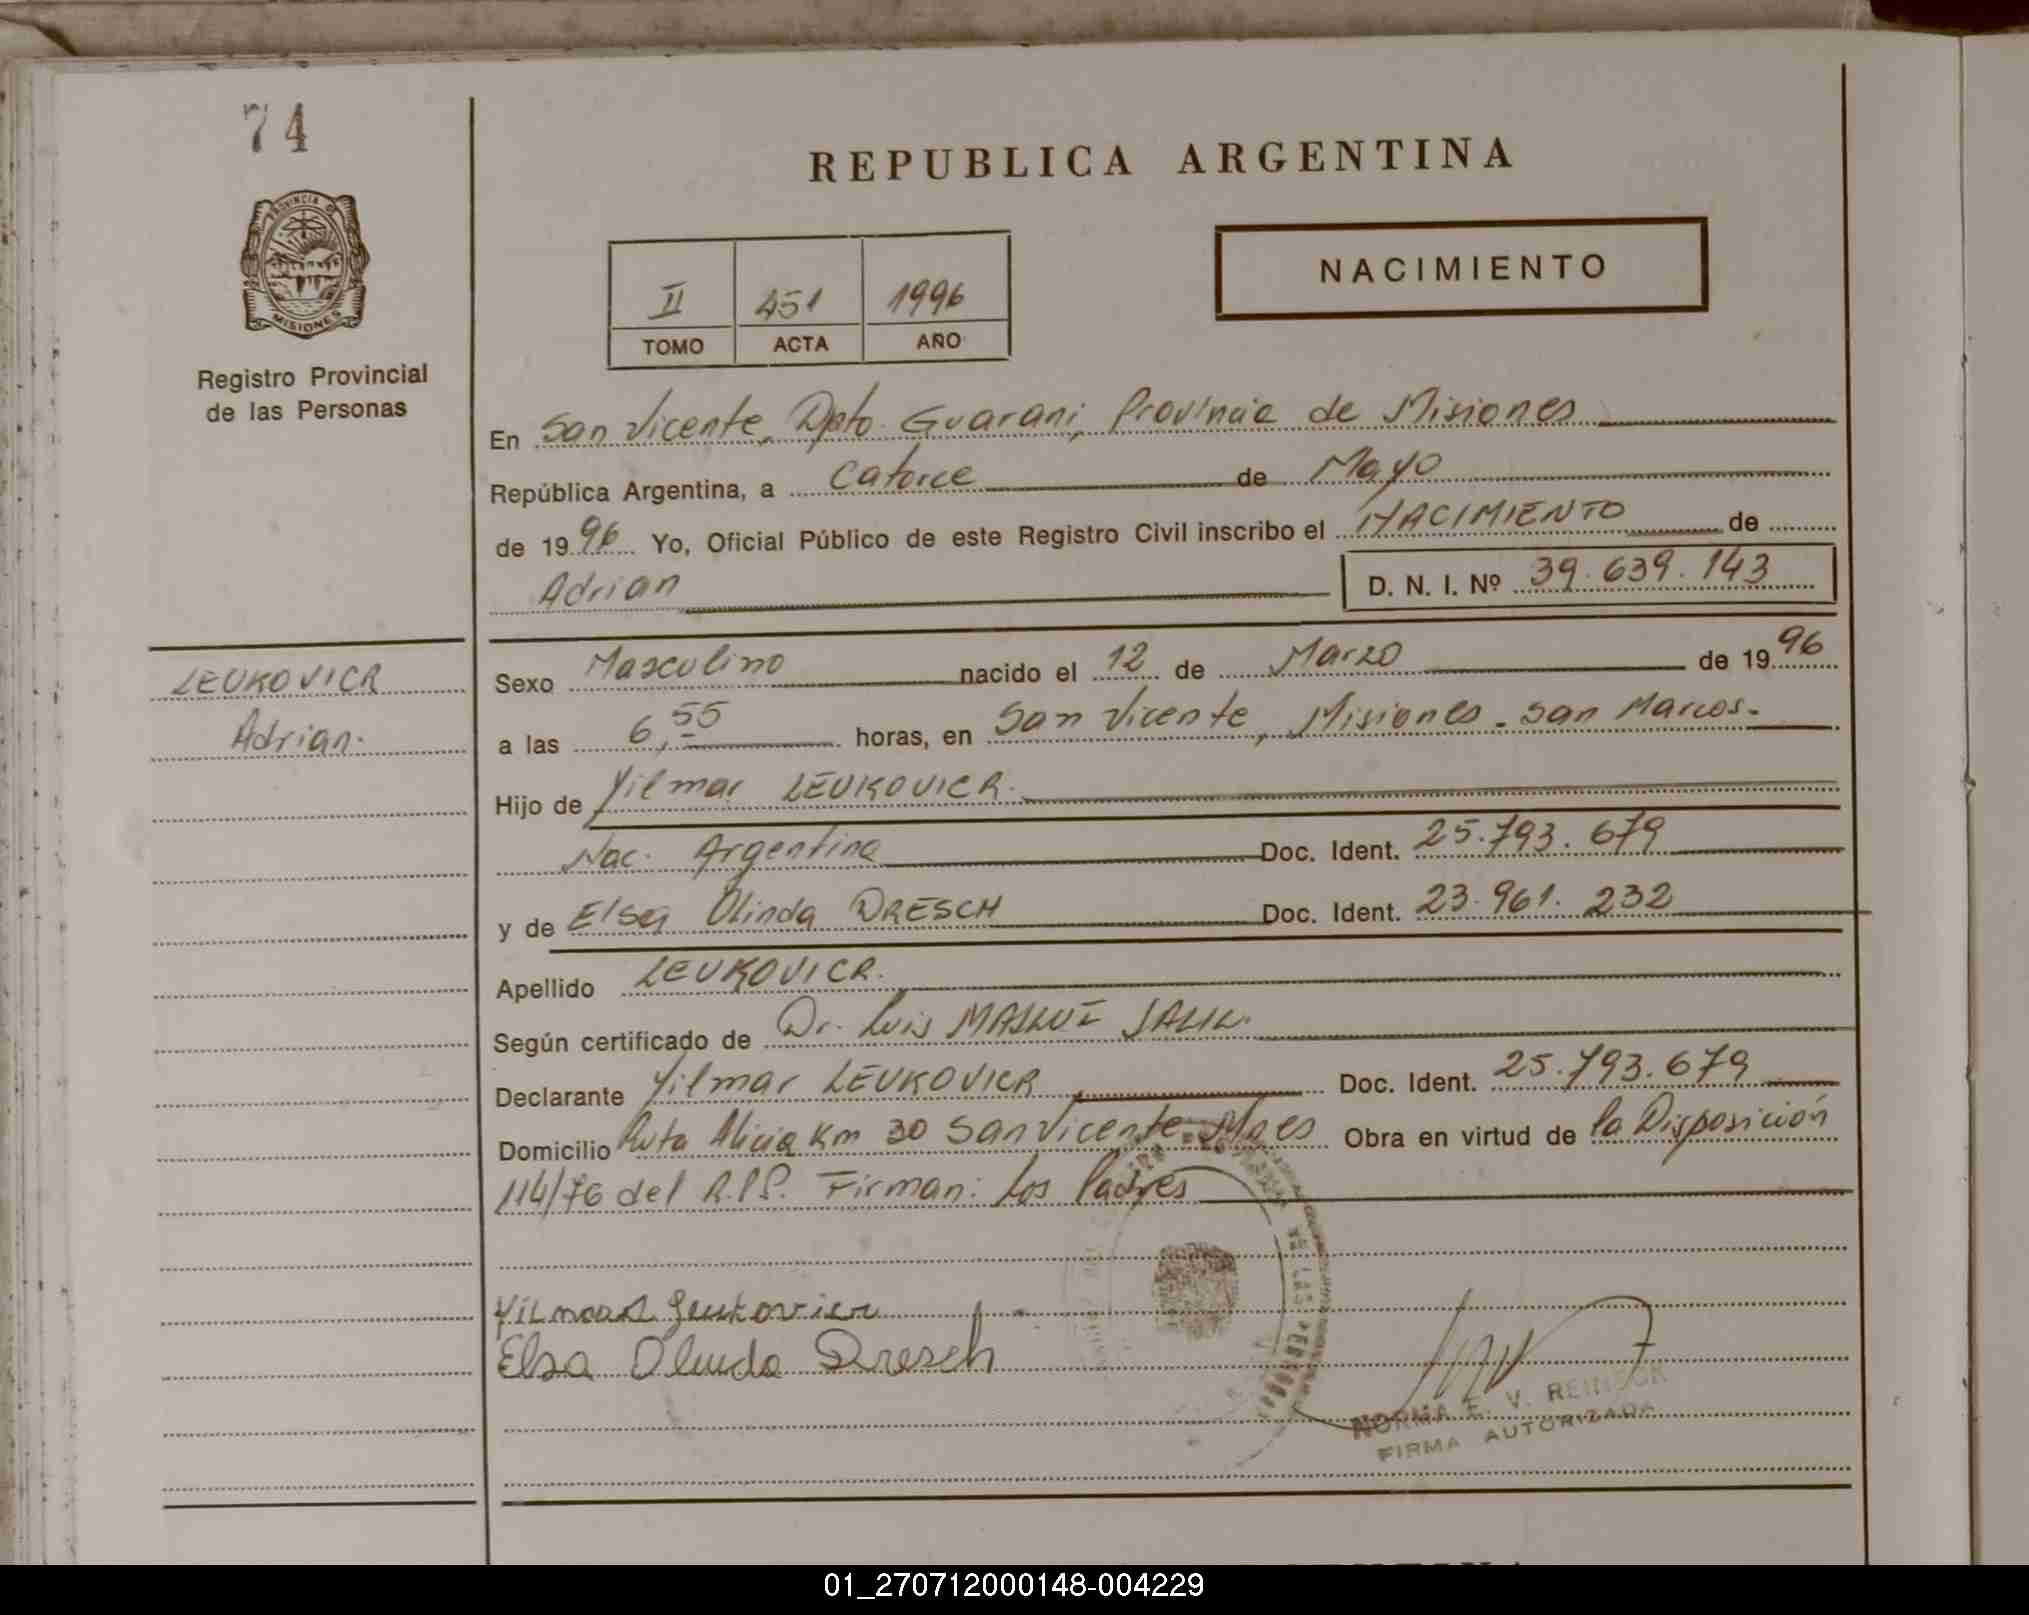 74
REPUBLICA ARGENTINA
PROVINCIA DE
MISIONES
Registro Provincial
de las Personas
II 451 1996
TOMO ACTA AÑO
NACIMIENTO
En San Vicente, Dpto. Guarani, Provincia de Misiones
República Argentina, a Catorce de Mayo
de 1996 Yo, Oficial Público de este Registro Civil inscribo el NACIMIENTO de
Adrian D. N. I. Nº 39.639.143
LEUKOVICR
Adrian.
Sexo Masculino nacido el 12 de Marzo de 1996
a las 6,55 horas, en San Vicente, Misiones - San Marcos.
Hijo de Yilmar LEUKOVICR.
Nac. Argentina Doc. Ident. 25.793.679
y de Elsa Olinda DRESCH Doc. Ident. 23.961.232
Apellido LEUKOVICR.
Según certificado de Dr. Luis
Declarante Yilmar LEUKOVICR Doc. Ident. 25.793.679
Domicilio Ruta Alicia Km 30 San Vicente Mnes Obra en virtud de la Disposición
114/76 del R.P.P. Firman: Los Padres
Yilmar Leukovicr
Elsa Olinda Dresch
NORMA E. V.
FIRMA AUTORIZADA
01_270712000148-004229